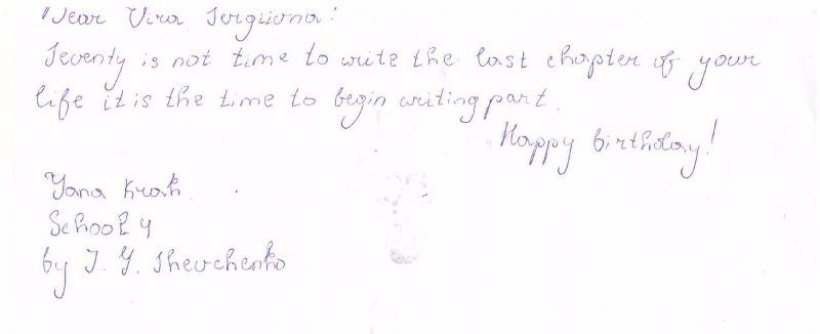 Dear Vira Sergiivna!
Seventy is not time to write the last chapter of your
life it is the time to begin writing part.
Happy birthday!
Yana Krak
School 4
by T. G. Shevchenko